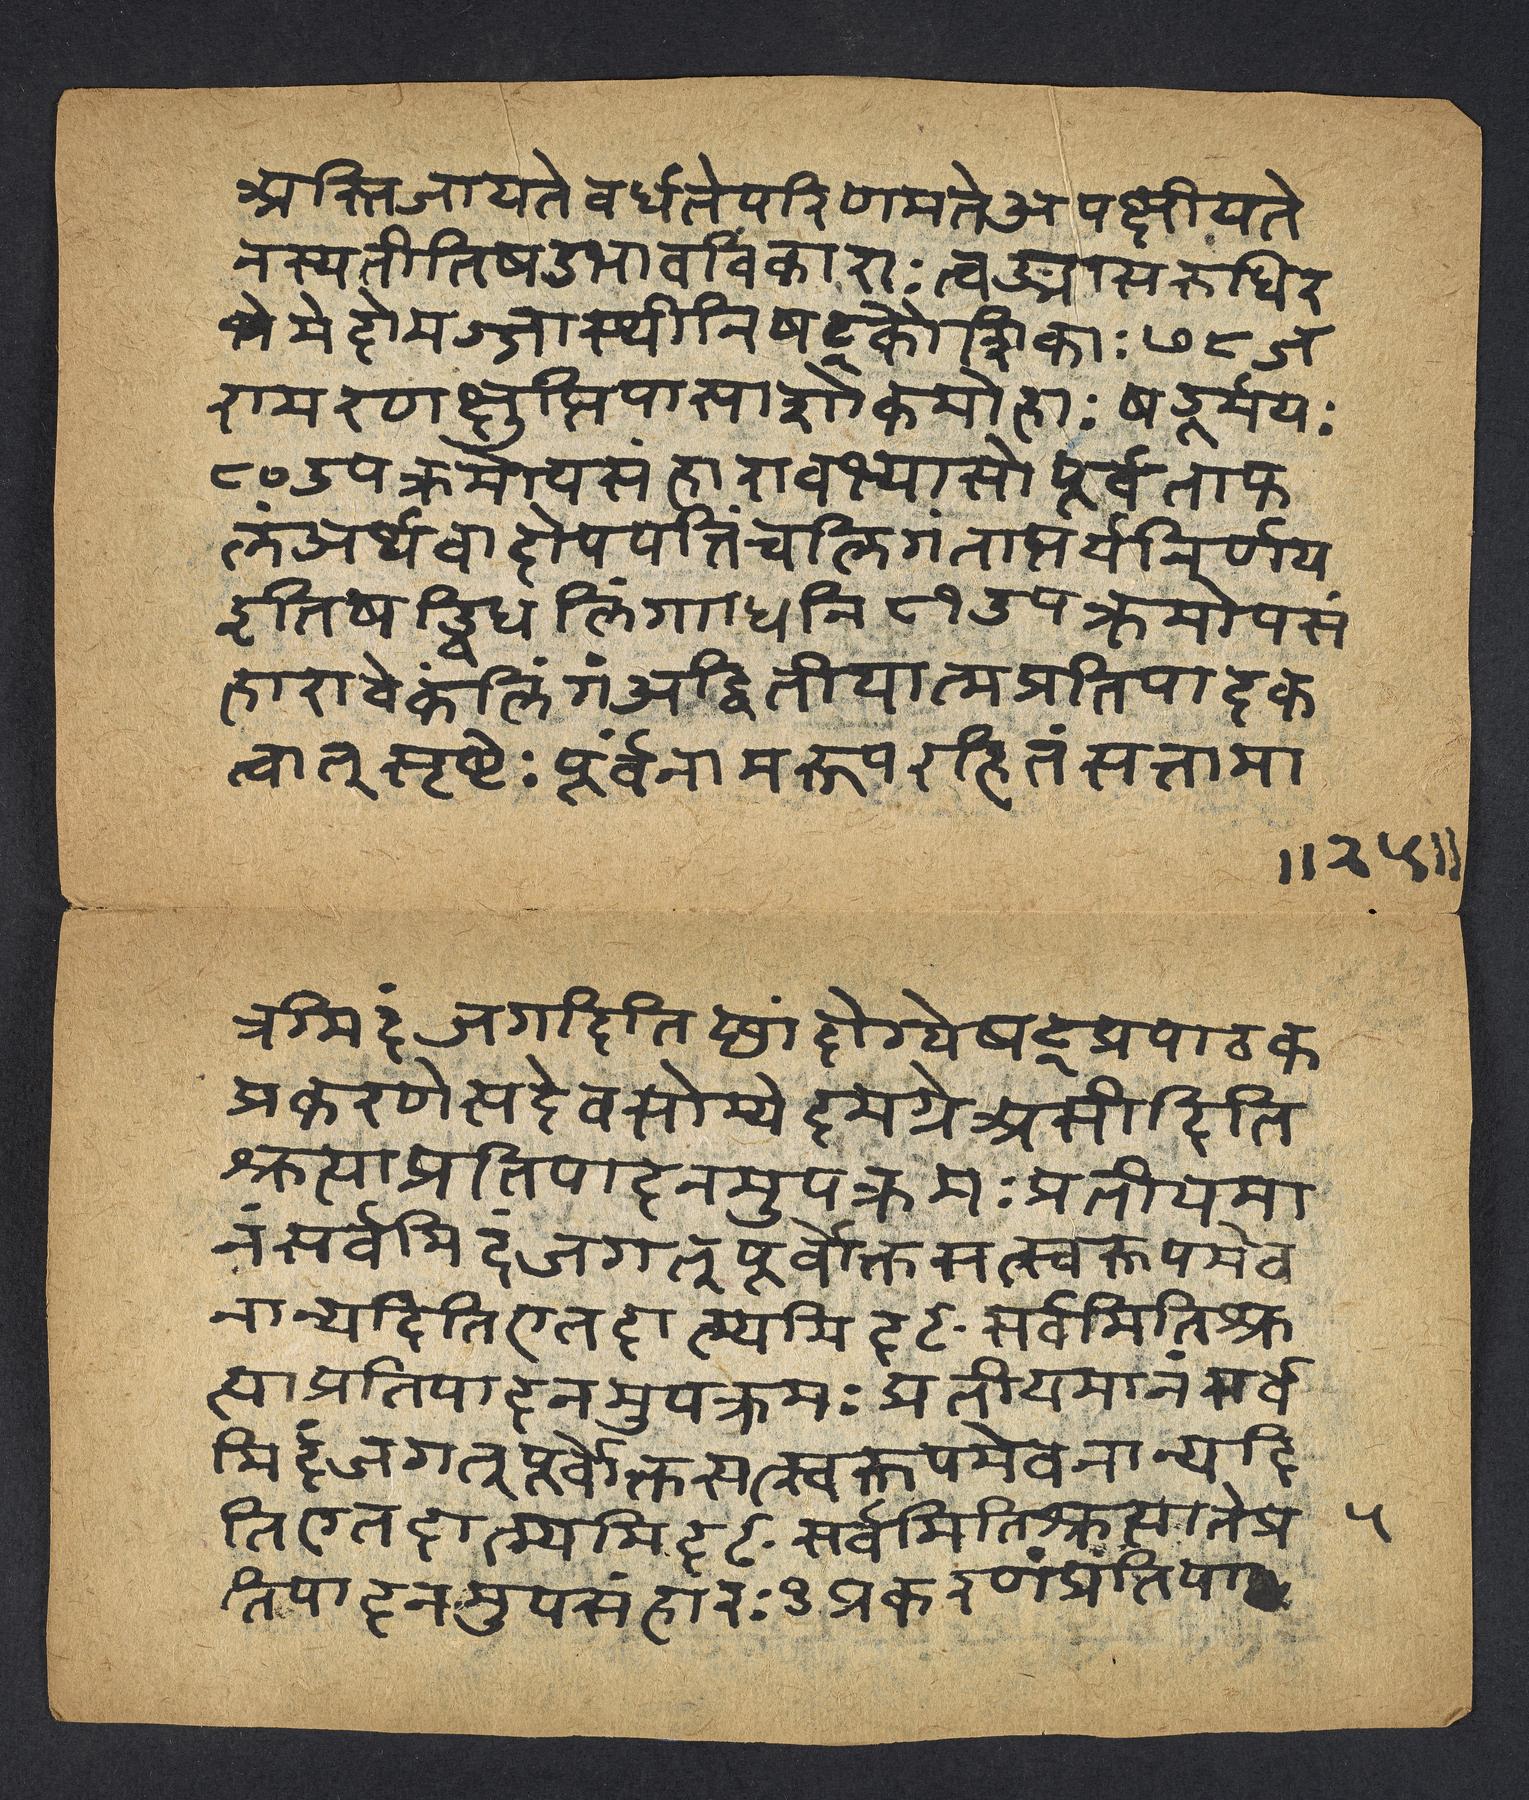 अस्तिजायतेवर्धतेपरिणमतेअपक्षीयते
नस्यतीतिषड्भावविकाराः त्वङ्मासरुधिर
मेदोमज्जास्थीनिषट्कौशिकाः ७८ ज
रामरणक्षुत्पिपासाशोकमोहाः षडूर्मयः
८० उपक्रमोपसंहारावभ्यासोपूर्वताफ
लंअर्थवादोपपत्तिंचलिगंतात्पर्यनिर्णय
इतिषड्विधलिंगाधनि ८१ उपक्रमोपसं
हारावेकंलिंगंअद्वितीयात्मप्रतिपादक
त्वात्सृष्टेः पूर्वंनामरूपरहितंसत्तामा
॥२५॥
त्रमिदंजगदितिछांदोग्येषट्प्रपाठक
प्रकरणेसदेवसोम्येदमग्रेअसीदिति
श्रुत्याप्रतिपादनमुपक्रमः प्रतीयमा
नंसर्वमिदंजगत्पूर्वोक्तसत्स्वरूपमेव
नान्यदितिएतदात्म्यमिदꣳसर्वमितिश्रु
त्याप्रतिपादनमुपक्रमः प्रतीयमानंसर्व
मिदंजगत्पूर्वोक्तसत्स्वरूपमेवनान्यदि
तिएतदात्म्यमिदꣳसर्वमितिश्रुत्यातेप्र ५
तिपादनमुपसंहारः १ प्रकरणंप्रतिपा